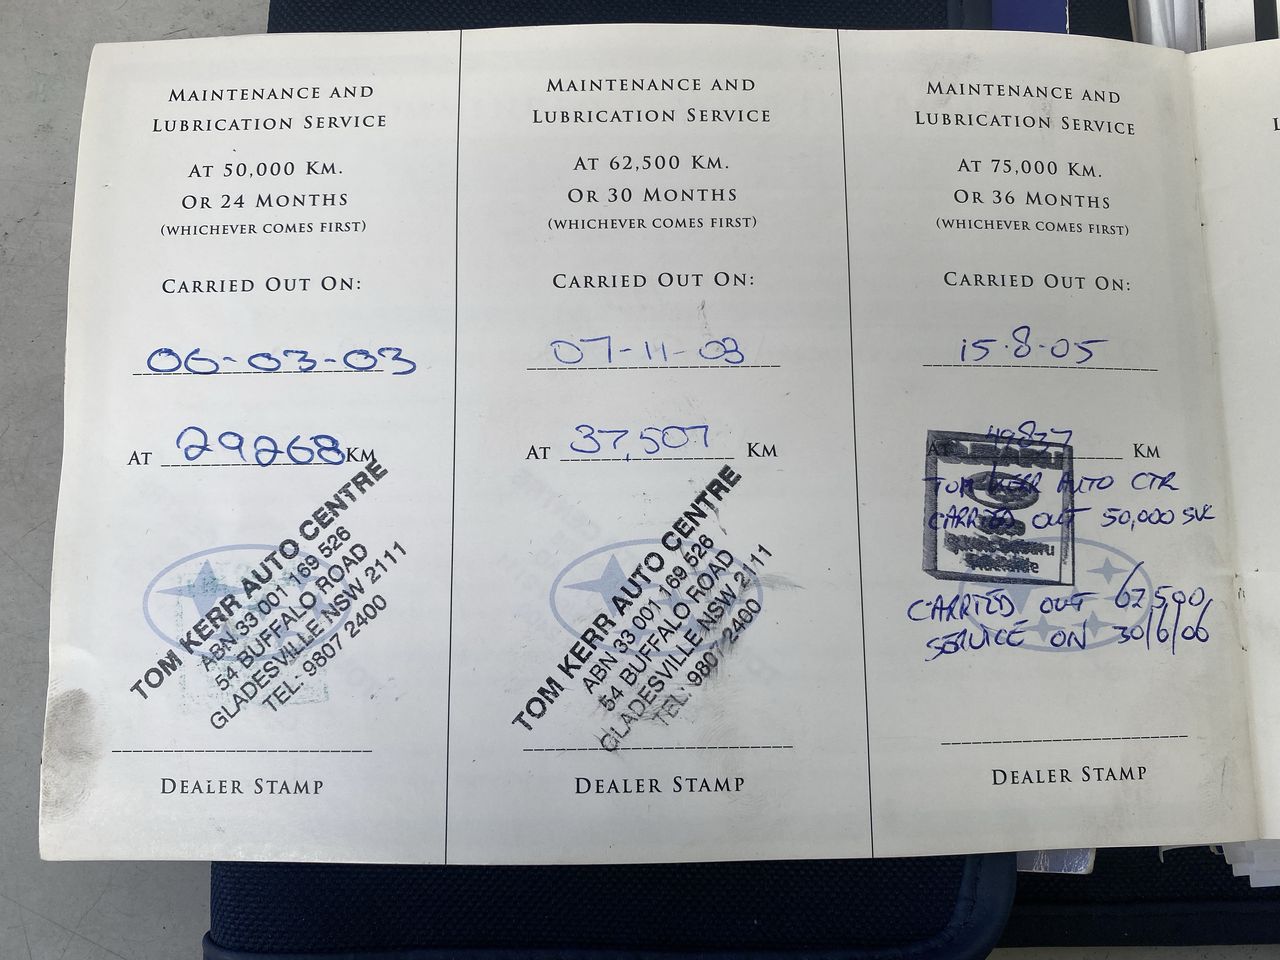 MAINTENANCE AND
LUBRICATION SERVICE
AT 50,000 KM.
OR 24 MONTHS
(WHICHEVER COMES FIRST)
CARRIED OUT ON:
06-03-03
AT 29268 KM
TOM KERR AUTO CENTRE
ABN 33 001 169 526
54 BUFFALO ROAD
GLADESVILLE NSW 2111
TEL: 9807 2400
DEALER STAMP
MAINTENANCE AND
LUBRICATION SERVICE
AT 62,500 KM.
OR 30 MONTHS
(WHICHEVER COMES FIRST)
CARRIED OUT ON:
07-11-03
AT 37,507 KM
TOM KERR AUTO CENTRE
ABN 33 001 169 526
54 BUFFALO ROAD
GLADESVILLE NSW 2111
TEL: 9807 2400
DEALER STAMP
MAINTENANCE AND
LUBRICATION SERVICE
AT 75,000 KM.
OR 36 MONTHS
(WHICHEVER COMES FIRST)
CARRIED OUT ON:
15.8.05
AT 49837 KM
SUBARU
TOM KERR AUTO CTR
CARRIED OUT 50,000 SVC
CARRIED OUT 62,500,
SERVICE ON 30/6/06
DEALER STAMP